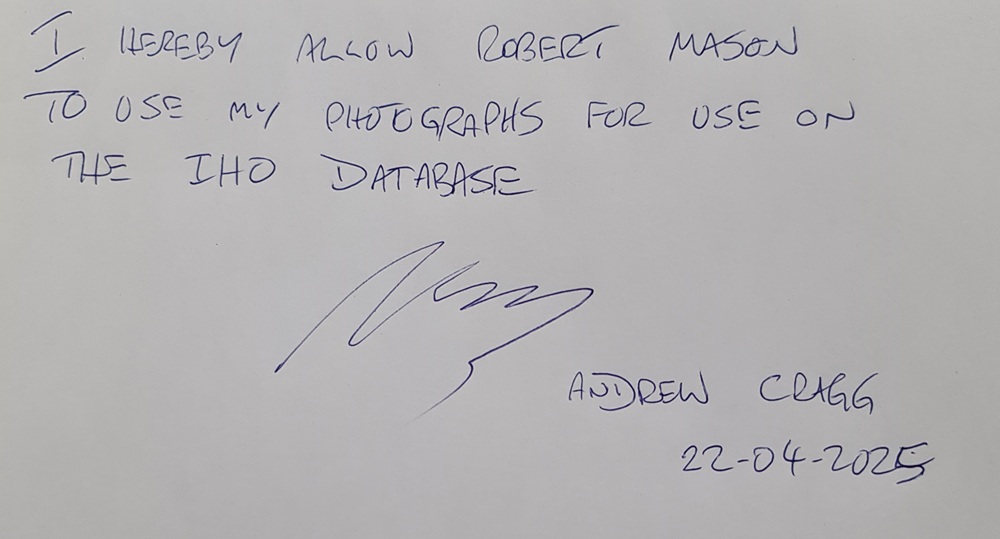 I HEREBY ALLOW ROBERT MASON
TO USE MY PHOTOGRAPHS FOR USE ON
THE IHO DATABASE
ANDREW CRAGG
22-04-2025